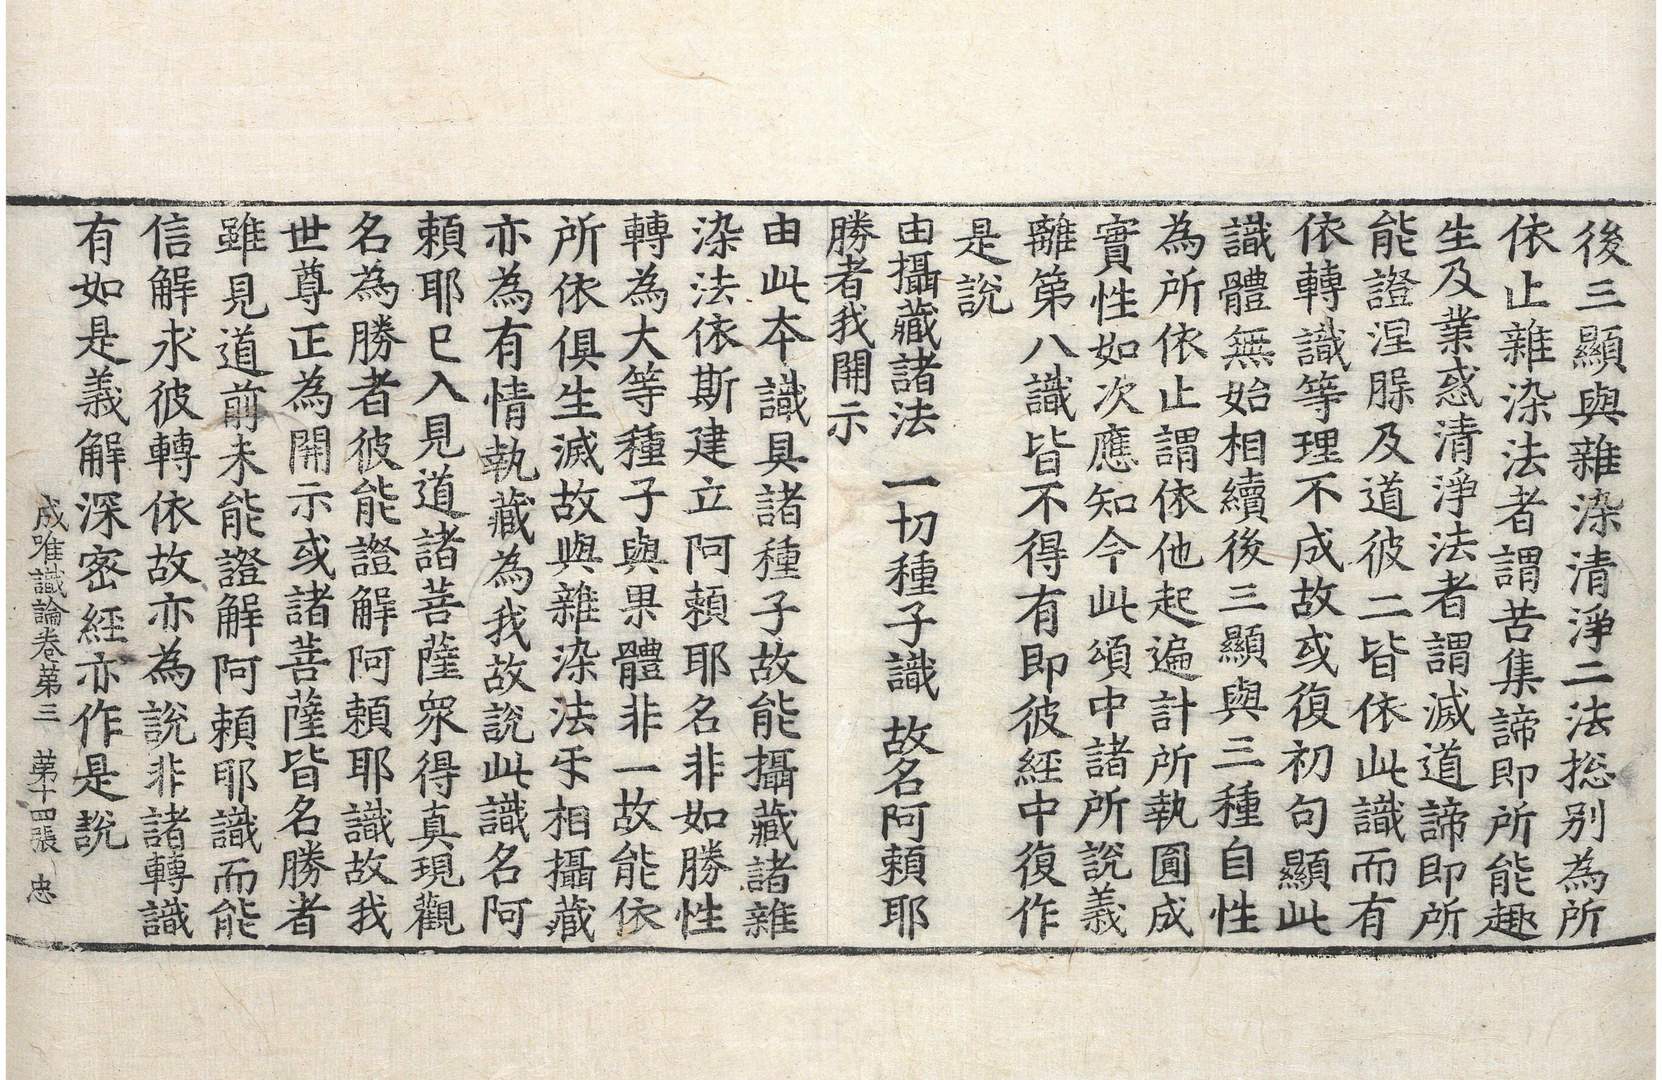 後三顯與雜染清淨二法揔别為所
依止雜染法者謂苦集諦即所能趣
生及業惑清淨法者謂滅道諦即所
能證涅脲及道彼二皆依此識而有
依轉識等理不成故或復初句顯此
識體無始相續後三顯與三種自性
為所依止謂依他起遍計所執圓成
實性如次應知今此頌中諸所說義
離第八識皆不得有即彼經中復作
是說
由攝藏諸法 一切種子識 故名阿賴耶
勝者我開示
由此本識具諸種子故能攝藏諸雜
染法依斯建立阿賴耶名非如勝性
轉為大等種子與果體非一故能依
所依俱生滅故與雜染法㸦相攝藏
亦為有情執藏為我故說此識名阿
賴耶已入見道諸菩薩衆得真現觀
名為勝者彼能證解阿賴耶識故我
世尊正為開示或諸菩薩皆名勝者
雖見道前未能證解阿賴耶識而能
信解求彼轉依故亦為說非諸轉識
有如是義解深密經亦作是說
成唯識論卷第三 第十四張 忠